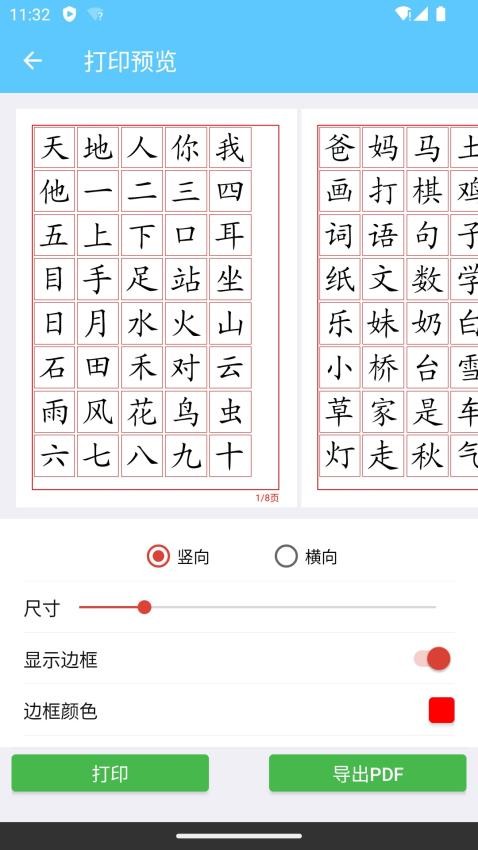 11:32
打印预览
天地人你我
他一二三四
五上下口耳
目手足站坐
日月水火山
石田禾对云
雨风花鸟虫
六七八九十
1/8页
爸妈马土
画打棋鸡
词语句子
纸文数学
乐妹奶白
小桥台雪
草家是车
灯走秋气
竖向 横向
尺寸
显示边框
边框颜色
打印 导出PDF